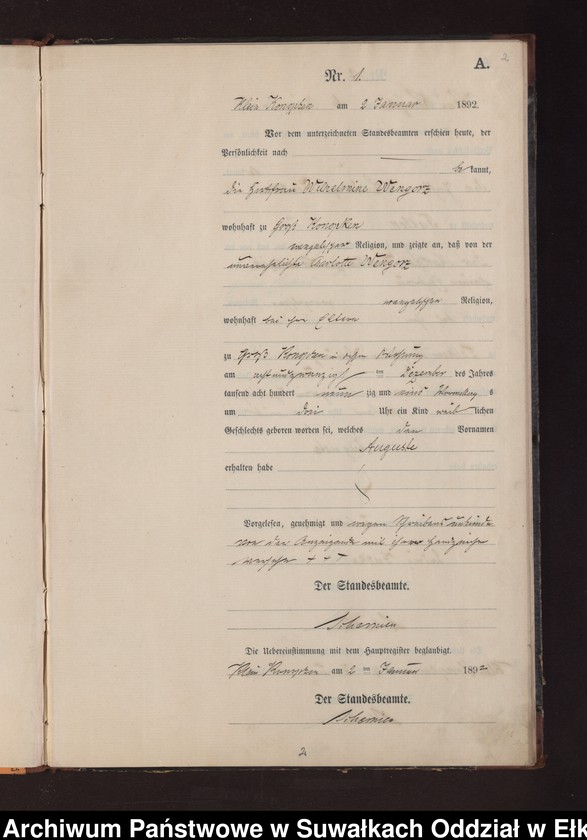 A.
2
Nr. 1.
Klein Konopken am 2 Januar 1892.
Vor dem unterzeichneten Standesbeamten erschien heute, der
Persönlichkeit nach
be kannt,
die Wilhelmine Wengorz
wohnhaft zu Groß Konopken
evangelischer Religion, und zeigte an, daß von der
unverehelichte Charlotte Wengorz
evangelischer Religion,
wohnhaft bei ihren Eltern
zu Groß Konopken in Wohnung
am achtundzwanzigsten Dezember des Jahres
tausend acht hundert neun zig und eins Vormittag s
um drei Uhr ein Kind weib lichen
Geschlechts geboren worden sei, welches den Vornamen
Auguste
erhalten habe
Vorgelesen, genehmigt und wegen Schreibens unkunde
von der Anzeigende mit ihrem Handzeichen
versehen + + +
Der Standesbeamte.
Die Uebereinstimmung mit dem Hauptregister beglaubigt.
Klein Konopken am 2 ten Januar 1892
Der Standesbeamte.
2
Archiwum Państwowe w Suwałkach Oddział w Ełk